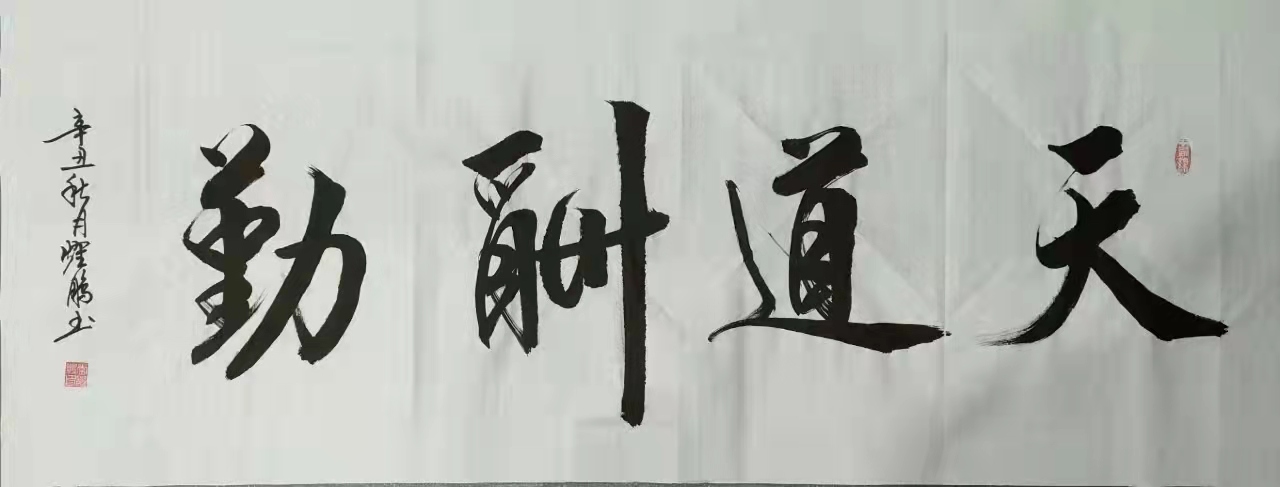 天道酬勤
辛丑秋月耀鹏书